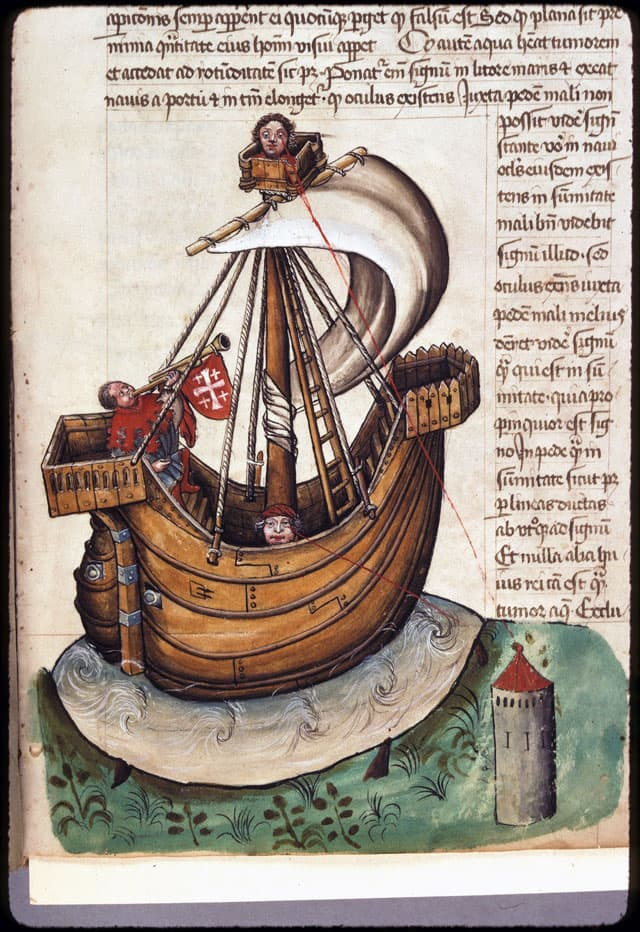 a picionis semp apparent ei quocūqȝ pget qd falsum est Sed qp plana sit pre
nimia qntitate eius hom̄ visui appet Qp autē aqua heat tumorem
et accedat ad rotūditatē sic pȝ Ponat̄ em̄ signū in litore maris & exeat
nauis a portu & in tm̄ elonget̄ · qp oculus existens Iuxta pedem mali non
possit videre signū
stante vo in naui
ocls eiusdem exis
tens in sūmitate
mali bn̄ videbit
signū illud · sed
oculus exn̄s iuxta
pedem mali melius
deret videre signū
qȝ qui est in sū
mitate · quia pro
pinquior est sig
no In pede qȝ in
sūmitate sicut pȝ
p lineas ductas
ab vtoqȝ ad signū
Et nulla alia hu
ius rei cā est qȝ
tumor aqȝ Exclu